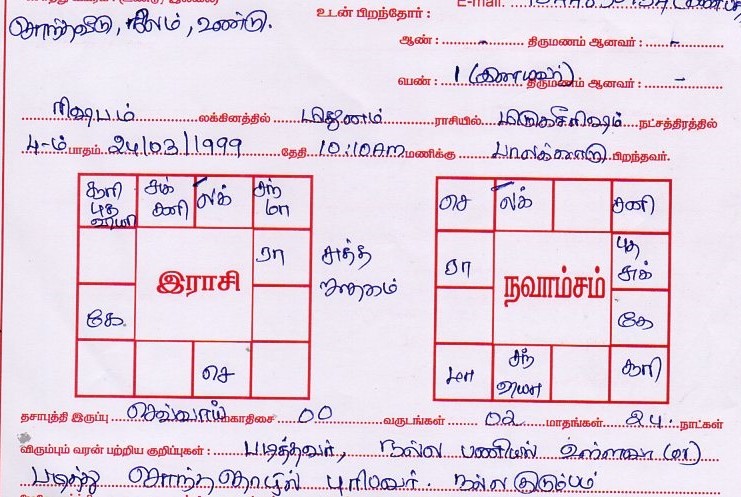 சொந்தவீடு, நிலம், உண்டு.
உடன் பிறந்தோர் :
E-mail:
ஆண் : - திருமணம் ஆனவர் : -
பெண் : 1 (இளையவர்) திருமணம் ஆனவர் : -
ரிஷபம் லக்கினத்தில் மிதுனம் ராசியில் மிருகசீரிஷம் நட்சத்திரத்தில்
4-ம் பாதம் 24/03/1999 தேதி 10:10Am மணிக்கு பாலக்காடு பிறந்தவர்.
சூரி புத வியா
சுக் சனி
லக்
சந் மா
செ
லக்
சனி
ரா
ரா
புத சுக்
இராசி
சுத்த ஜாதகம்
நவாம்சம்
கே
கே
செ
மா
சந் வியா
சூரி
தசாபுத்தி இருப்பு செவ்வாய் மகாதிசை 00 வருடங்கள் 02 மாதங்கள் 24 நாட்கள்
விரும்பும் வரன் பற்றிய குறிப்புகள் : படித்தவர், நல்ல பணியில் உள்ளவர் (or)
படித்து சொந்த தொழில் புரிபவர். நல்ல குடும்பம்